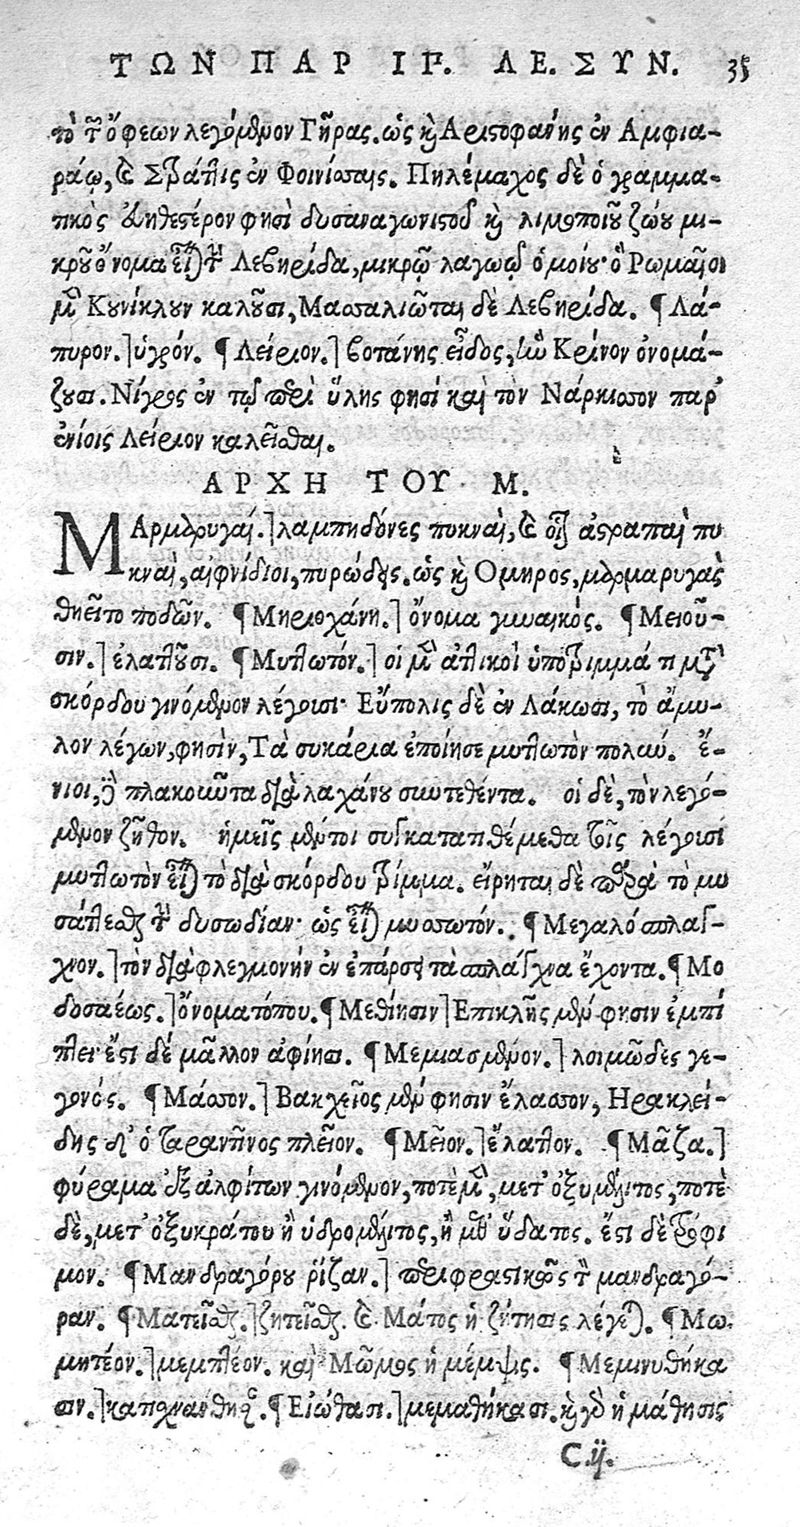 ΤΩΝ ΠΑΡ ΙΠ. ΛΕ. ΣΥΝ. 35
τὸ τῶν ὄφεων λεγόμενον Γῆρας. ὡς καὶ Αριστοφάνης ἐν Αμφια-
ράῳ, καὶ Στράττις ἐν Φοινίσσαις. Πηλέμαχος δὲ ὁ γραμμα-
τικὸς φησὶ δυσαναγωνίστου καὶ λιμοποιοῦ ζώου μι-
κροῦ ὄνομα εἶναι τὴν Λεβηρίδα, μικρῷ λαγωῷ ὁμοίου· ὃ Ρωμαῖοι
μὲν Κουνίκλουν καλοῦσι, Μασσαλιῶται δὲ Λεβηρίδα. ¶ Λά-
πυρον.] ὑγρόν. ¶ Λείριον.] βοτάνης εἶδος, ἣν Κρίνον ὀνομά-
ζουσι. Νίγρος ἐν τῷ περὶ ὕλης φησὶ καὶ τὸν Νάρκισσον παρ᾽
ἐνίοις Λείριον καλεῖσθαι.
ΑΡΧΗ ΤΟΥ Μ.
ΜΑρμαρυγαί.] λαμπηδόνες πυκναὶ, καὶ οἷον ἀστραπαὶ πυ
κναὶ, αἰφνίδιοι, πυρώδεις. ὡς καὶ Ομηρος, μαρμαρυγὰς
θηεῖτο ποδῶν. ¶ Μηριοχάνη.] ὄνομα γυναικός. ¶ Μειοῦ-
σιν.] ἐλαττοῦσι. ¶ Μυττωτόν.] οἱ μὲν ἀττικοὶ ὑπότριμμά τι μετὰ
σκόρδου γινόμενον λέγουσι· Εὔπολις δὲ ἐν Λάκωσι, τὸ ἄμυ-
λον λέγων, φησὶν, Τὰ συκάρια ἐποίησε μυττωτὸν πολύ. ἔ-
νιοι, πλακοῦντα διὰ λαχάνου συντεθέντα. οἱ δὲ, τὸν λεγό-
μενον ζῆθον. ἡμεῖς μέντοι συγκαταπθέμεθα τοῖς λέγουσι
μυττωτὸν εἶναι τὸ διὰ σκόρδου τρίμμα. εἴρηται δὲ παρὰ τὸ μυ
σάττεσθαι τὴν δυσωδίαν· ὡς εἶναι μυσσωτόν. ¶ Μεγαλόσπλαγ-
χνον.] τὸν διὰ φλεγμονὴν ἐν ἐπάρσει τὰ σπλάγχνα ἔχοντα. ¶ Μο
δοσαέως.] ὄνομα τόπου. ¶ Μεθίησιν] Επικλῆς μέν φησιν ἐμπί
πλει· ἔστι δὲ μᾶλλον ἀφίησι. ¶ Μεμιασμένον.] λοιμῶδες γε-
γονός. ¶ Μάσσον.] Βακχεῖος μέν φησιν ἔλασσον, Ηρακλεί-
δης δ᾽ ὁ Ταραντῖνος πλεῖον. ¶ Μεῖον.] ἔλαττον. ¶ Μᾶζα.]
φύραμα ἐξ ἀλφίτων γινόμενον, ποτὲ μὲν, μετ᾽ ὀξυμέλιτος, ποτὲ
δὲ, μετ᾽ ὀξυκράτου ἢ ὑδρομέλιτος, ἢ μεθ᾽ ὕδατος. ἔστι δὲ τρόφι
μον. ¶ Μανδραγόρου ῥίζαν.] περιφραστικῶς τὸν μανδραγό-
ραν. ¶ Ματεῖσθαι.] ζητεῖσθαι. καὶ Μάτος ἡ ζήτησις λέγεται. ¶ Μω.
μητέον.] μεμπτέον. καὶ Μῶμος ἡ μέμψις. ¶ Μεμινυθήκα
σιν.] ¶ Εἰώθασι.] μεμαθήκασι. καὶ γὰρ ἡ μάθησις
C.ij.